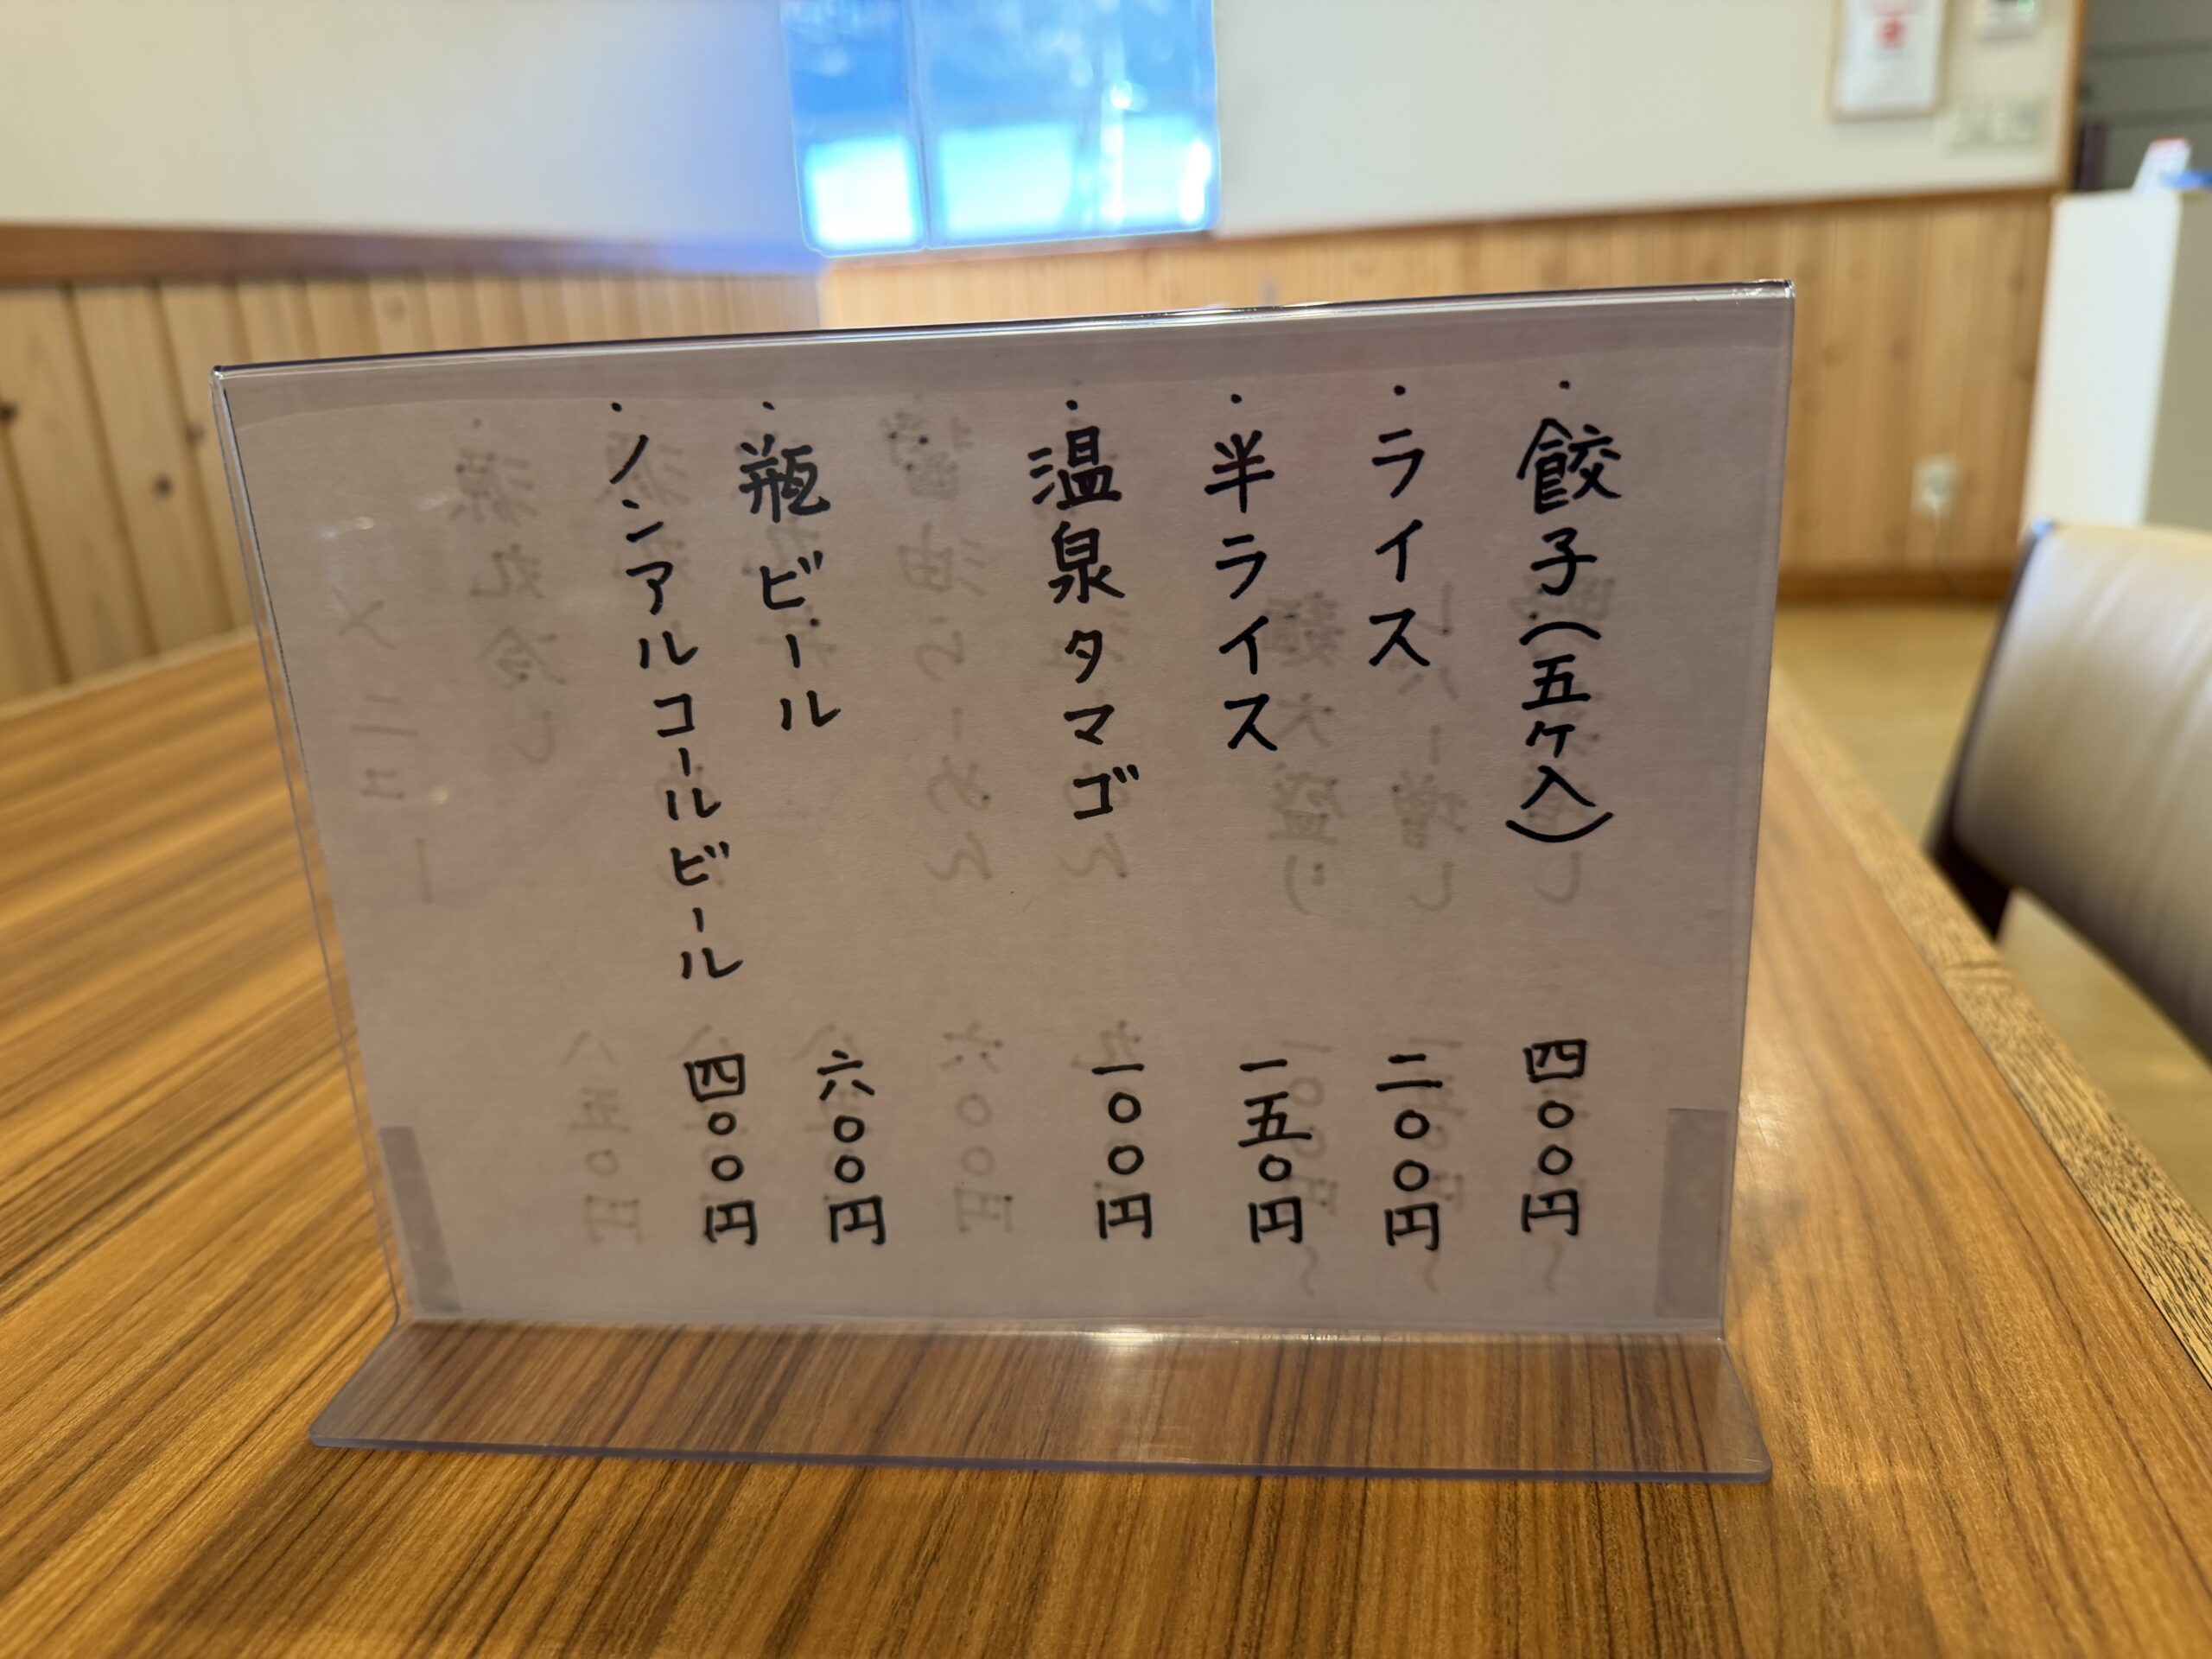 ・餃子(五ヶ入) 四〇〇円
・ライス 二〇〇円
・半ライス 一五〇円
・温泉タマゴ 一〇〇円
・瓶ビール 六〇〇円
・ノンアルコールビール 四〇〇円